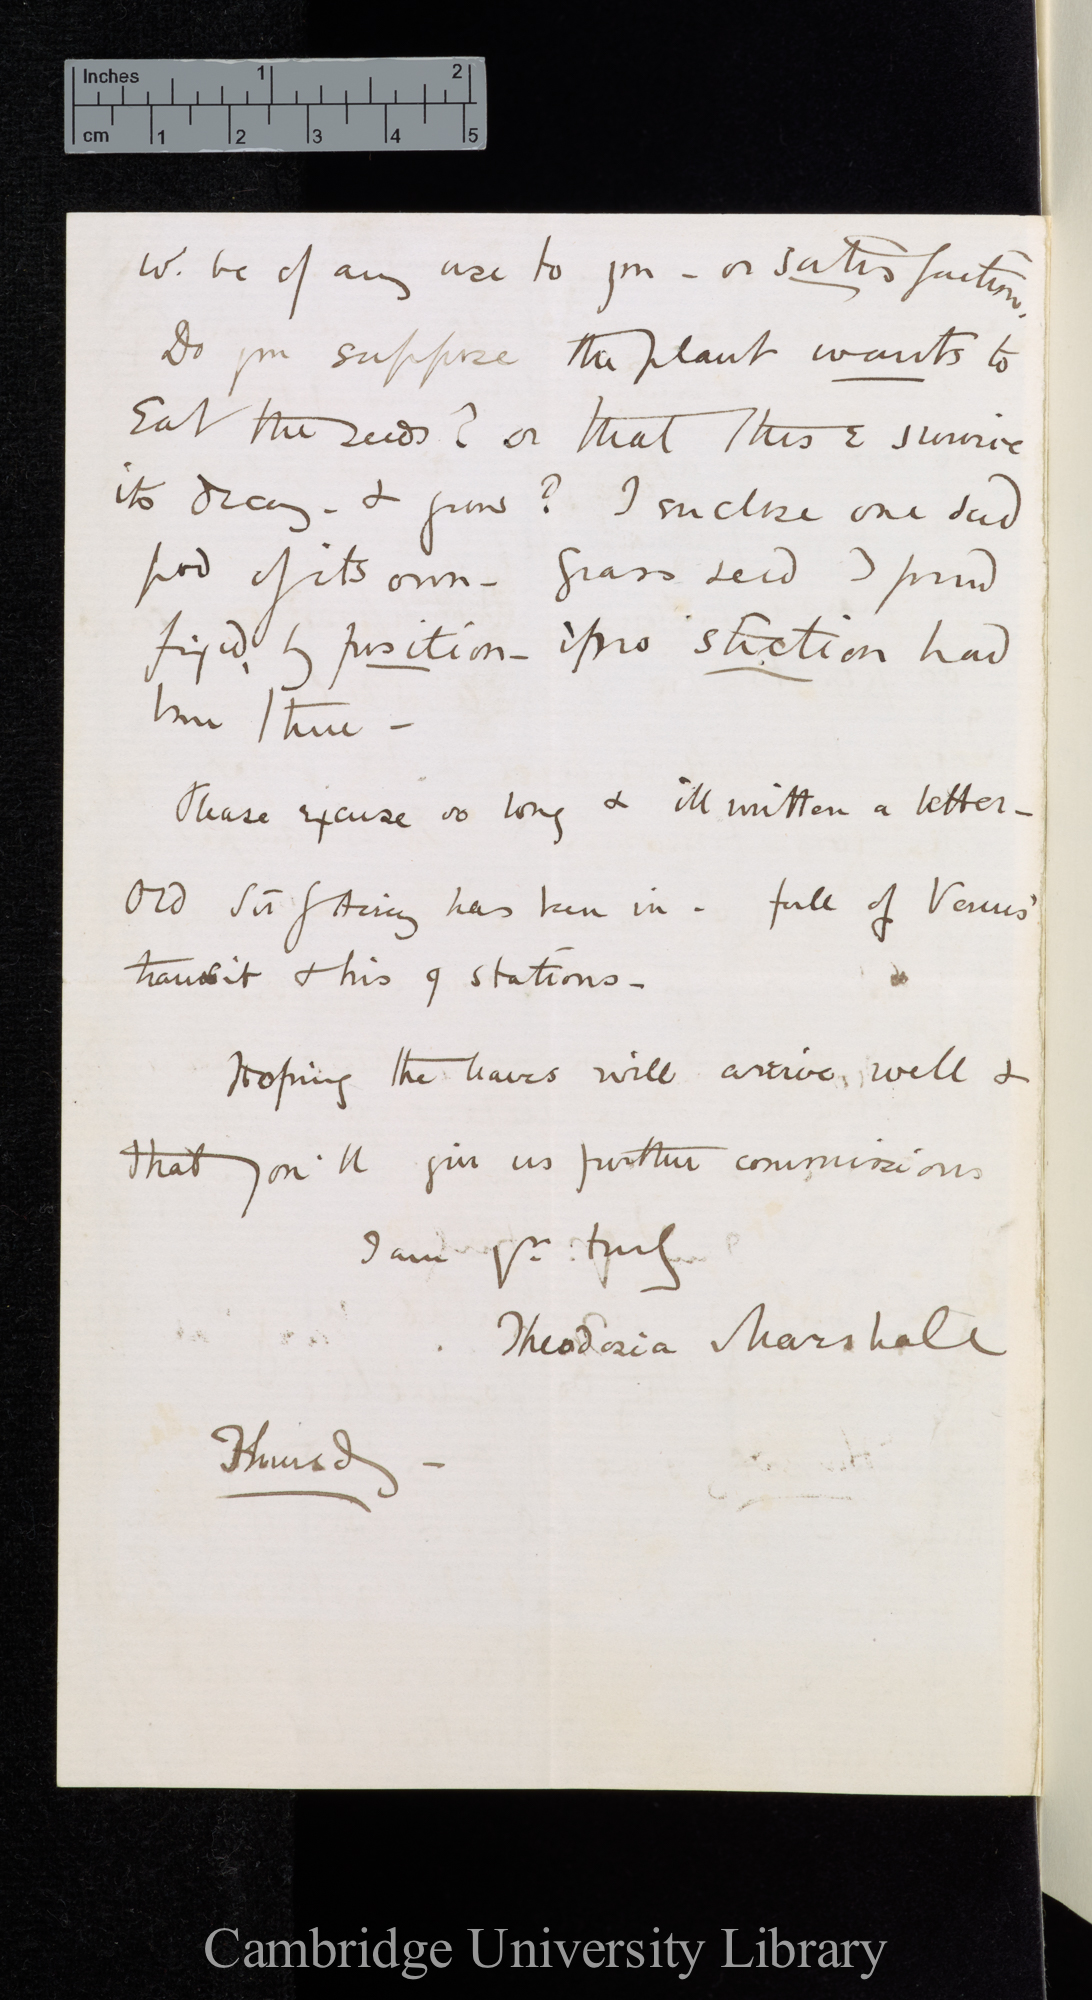 Inches 1 2
cm 1 2 3 4 5
wd. be of any use to you - or satisfaction.
Do you suppose the plant wants to
Eat the seeds? or that this & survive
its decay - & grow? I enclose one seed
pod of its own - Grass seed I found
fixed, by position - if no suction had
been there -
Please excuse so long & ill written a letter -
Old Sir G Airey has been in - full of Venus'
transit & his 9 stations -
Hoping the leaves will arrive well &
that you'll give us further commissions
I am yrs. truly
Theodosia Marshall
Thursdy -
Cambridge University Library